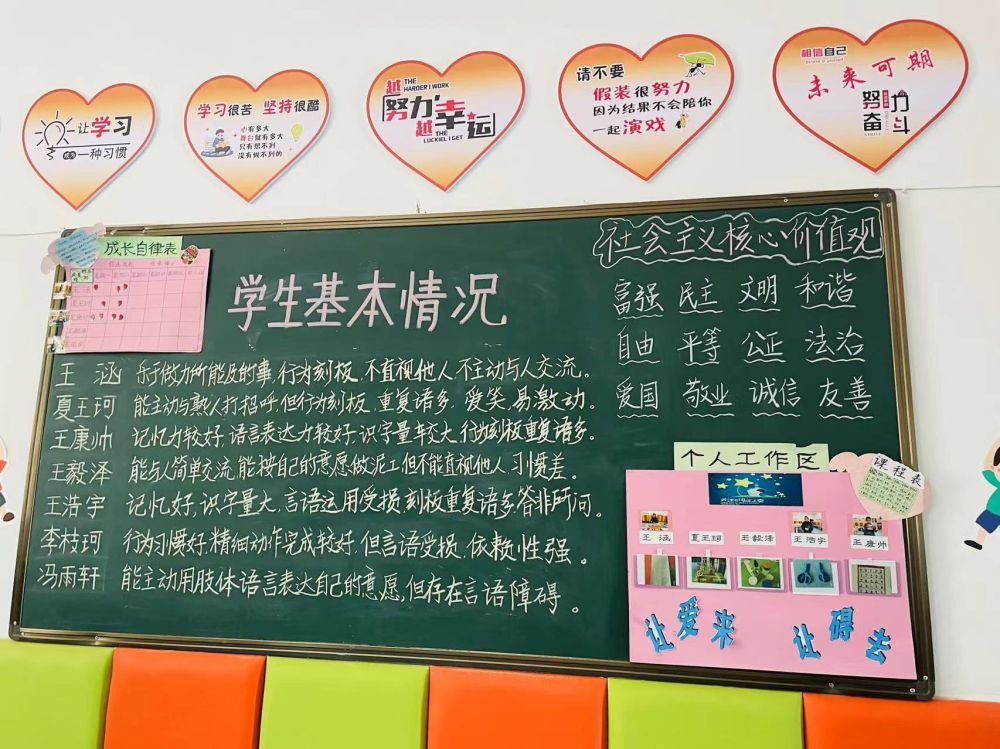 让学习
成为一种习惯
学习很苦 坚持很酷
心有多大
舞台就有多大
只有想不到
没有做不到的
越 THE HARDER I WORK
努力
越幸运
THE LUCKIEL I GET
请不要
假装很努力
因为结果不会陪你
一起演戏
相信自己
Believe in yourself
未来可期
努力
奋斗
成长自律表
学生基本情况
王 涵 乐于做力所能及的事,行为刻板,不直视他人,不主动与人交流。
夏王珂 能主动与熟人打招呼,但行为刻板,重复语多,爱笑,易激动。
王康帅 记忆力较好,语言表达力较好,识字量较大,行为刻板重复语多。
王毅泽 能与人简单交流,能按自己的意愿做泥工但不能直视他人,习惯差。
王浩宇 记忆好,识字量大,言语运用受损,刻板重复语多,答非所问。
李枝珂 行为习惯好,精细动作完成较好,但言语受损,依赖性强。
冯雨轩 能主动用肢体语言表达自己的意愿,但存在言语障碍。
社会主义核心价值观
富强 民主 文明 和谐
自由 平等 公正 法治
爱国 敬业 诚信 友善
个人工作区
课程表
王 涵 夏王珂 王毅泽 王浩宇 王康帅
让爱来 让碍去